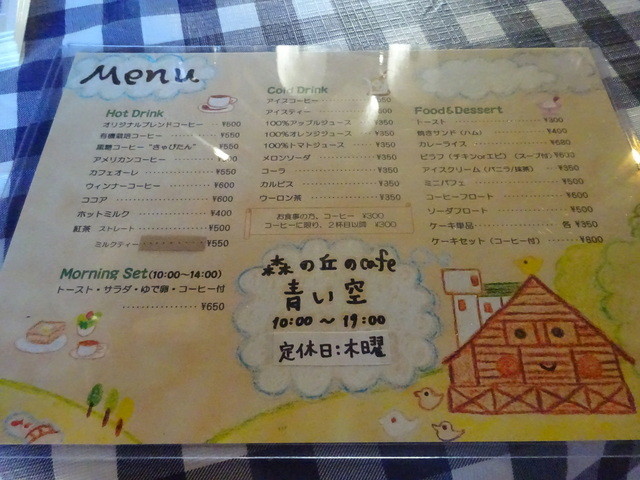 Menu
Hot Drink
オリジナルブレンドコーヒー ¥600
有機栽培コーヒー ¥550
黒糖コーヒー "きゃびたん" ¥550
アメリカンコーヒー ¥500
カフェオーレ ¥550
ウィンナーコーヒー ¥600
ココア ¥600
ホットミルク ¥400
紅茶 ストレート ¥500
ミルクティー ¥550
Morning Set(10:00~14:00)
トースト・サラダ・ゆで卵・コーヒー付
¥650
Cold Drink
アイスコーヒー
アイスティー
100%アップルジュース ¥350
100%オレンジジュース ¥350
100%トマトジュース ¥350
メロンソーダ ¥350
コーラ ¥350
カルピス ¥350
ウーロン茶 ¥350
お食事の方、コーヒー ¥300
コーヒーに限り、2杯目以降 ¥300
森の丘のcafe
青い空
10:00~19:00
定休日:木曜
Food&Dessert
トースト ¥300
焼きサンド(ハム) ¥400
カレーライス ¥680
ピラフ(チキンorエビ)(スープ付) ¥600
アイスクリーム(バニラ/抹茶) ¥350
ミニパフェ ¥500
コーヒーフロート ¥600
ソーダフロート ¥500
ケーキ単品 各 ¥350
ケーキセット(コーヒー付) ¥800